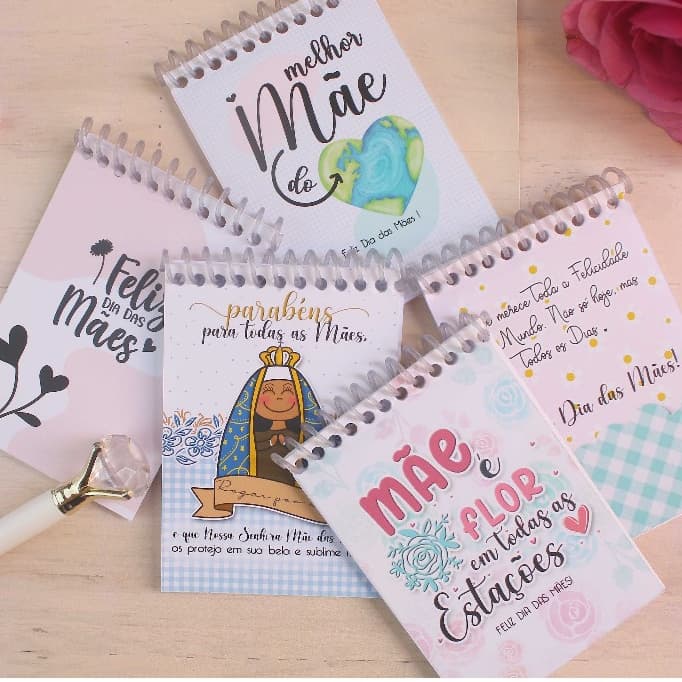 melhor
Mãe
do
Feliz Dia das Mães !
Feliz
DIA DAS
Mães
parabéns
para todas as Mães,
Rogai por
e que Nossa Senhora Mãe das
os proteja em sua bela e sublime
merece Toda a Felicidade
Mundo. Não só hoje, mas
Todos os Dias.
Dia das Mães!
MÃE é
FLOR
em todas as
Estações
FELIZ DIA DAS MÃES!